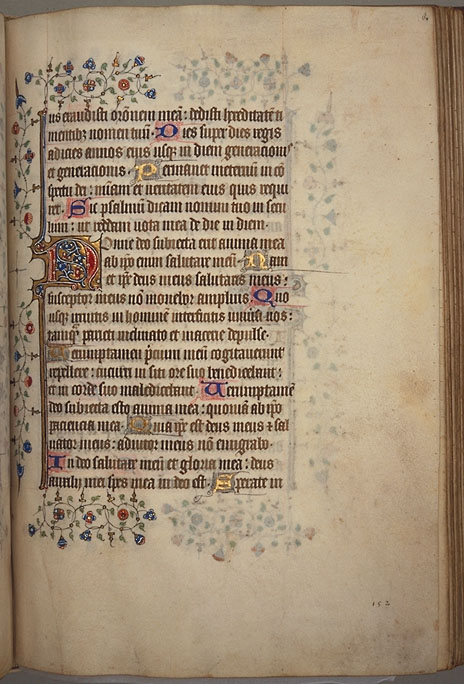 us exaudisti oronem mea: dedisti hereditate ti
mentib; nomen tuu. Dies super dies regis
adicies annos eius usq; in diem generacionis
et generacionis. Permanet in eternu in co
spectu dei: mīam et veritatem eius quis requi
ret. Sic psalmum dicam nomini tuo in secu
lum: ut reddam vota mea de die in diem.
Nonne deo subiecta erit anima mea
ab ipo enim salutare meu. Nam
et ipe deus meus salutaris meus:
susceptor meus no movebor amplius. Quo
usq; irruitis in hominem interficitis univsi vos:
tamq parieti inclinato et macerie depulse.
Verumptamen pcium meu cogitaverunt
repellere: cucurri in siti ore suo benedicebant:
et in corde suo maledicebant. Verumptame
deo subiecta esto anima mea: quonia ab ipo
paciencia mea. Quia ipe est deus meus et sal
vator meus: adiutor meus non emigrabo.
In deo salutare meu et gloria mea: deus
auxilii mei et spes mea in deo est. Sperate in
152